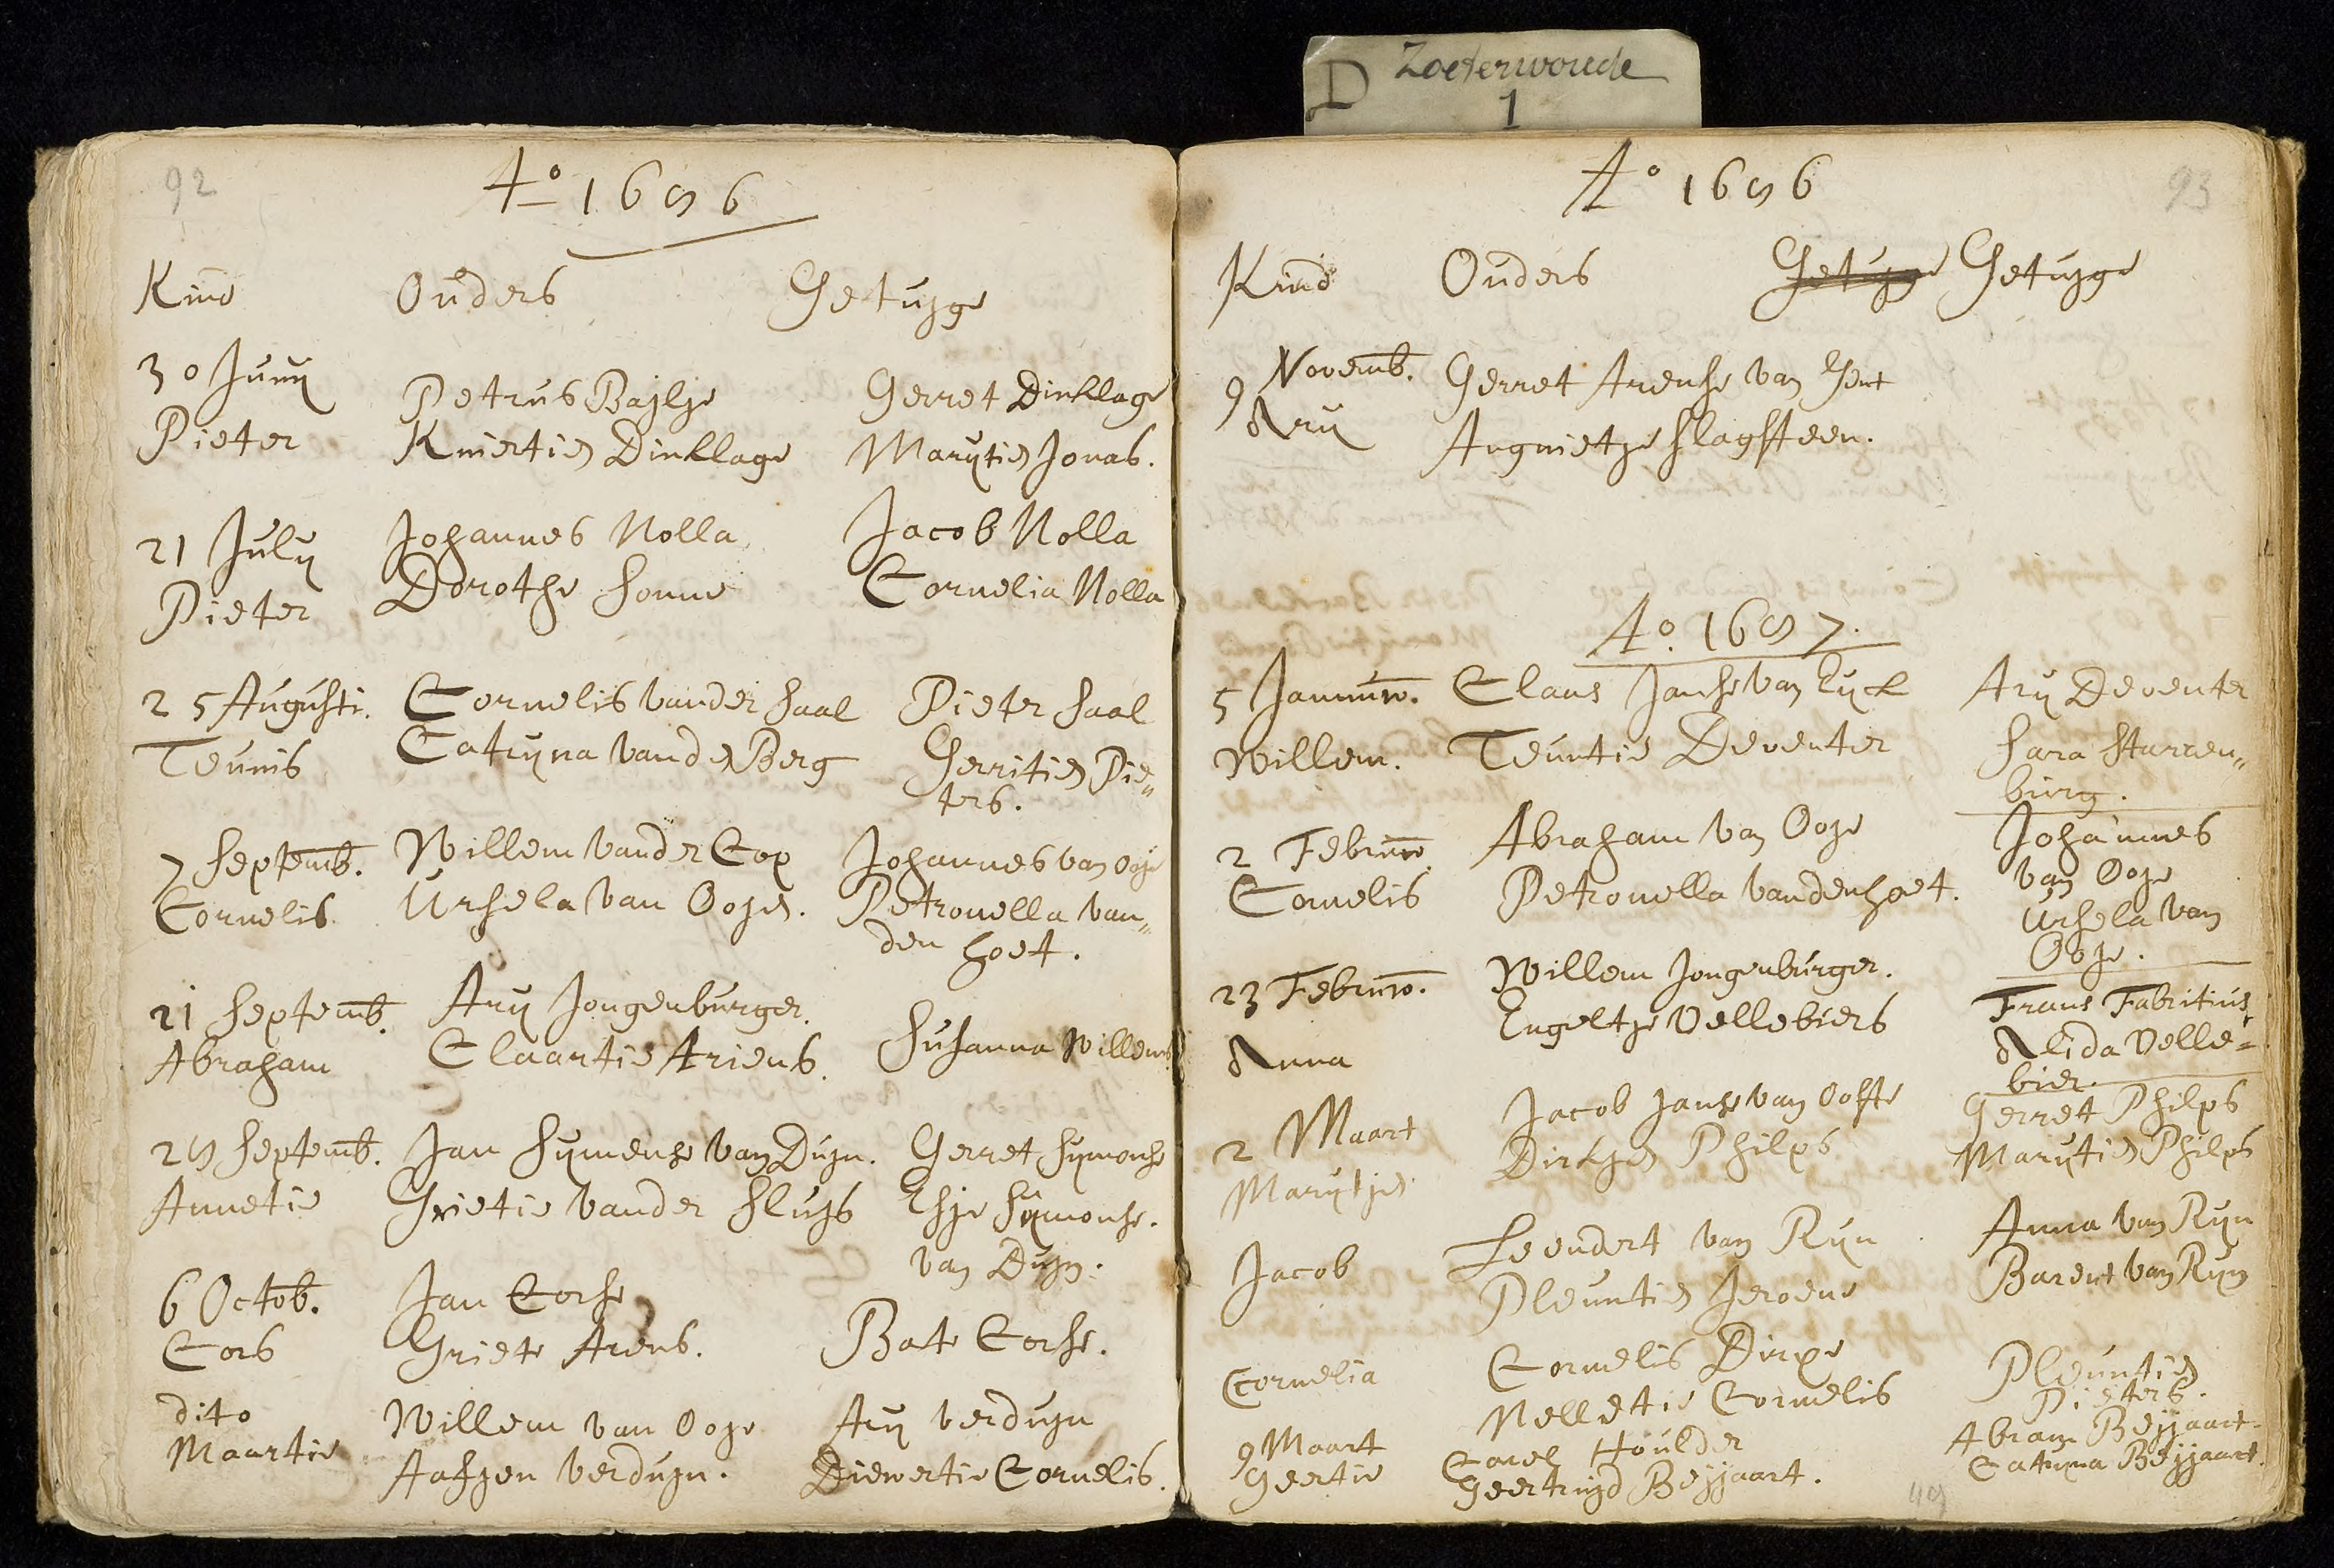 D Zoeterwoude
1
92
A° 1686
Kind Ouders Getuyge
30 Junij
Pieter
Petrus Baylje
Kniertien Dinklage
Gerret Dinklage
Marytien Jonas.
21 July
Pieter
Johannes Nolla
Dorothe Sonne
Jacob Nolla
Cornelia Nolla
25 Augusti.
Teunis
Cornelis vander Saal
Catryna vanden Berg
Pieter Saal
Gerritien Pie„
ters.
7 Septemb.
Cornelis
Willem vander Cop
Ursela van Oojen.
Johannes van Ooje
Petronella van„
den hoet.
21 Septemb.
Abraham
Ary Jongenburger.
Claartie Ariens.
Susanna Willems
28 Septemb.
Annetie
Jan Symense van Duyn.
Grietie vander Sluys
Gerret Symonse
Esje Symonse.
van Duyn.
6 Octob.
Cors
Jan Corse
Griete Arens.
Bate Corse.
dito
Maartie
Willem van Ooje
Aafgen Verduyn.
Ary Verduyn
Diewertie Cornelis.
93
A° 1686
Kind Ouders Getuyge Getuyge
9 Novemb.
Ary
Gerret Arense van Gent
Angnietje Slagsteen.
A° 1687.
5 Januaro.
Willem.
Claas Janse van Eyck
Teuntie Deventer
Ary Deventer
Sara Starren„
burg.
2 Februaro
Cornelis
Abraham van Ooje
Petronella vandenhoet.
Johannes
van Ooje
Ursela van
Ooje.
23 Februaro.
Anna
Willem Jongenburger.
Engeltje Vellebiers
Frans Fabritius,
Alida Velle=
bier.
2 Maart
Marytjen
Jacob Janse van Oofte
Dirkjen Philps
Gerret Philps
Marytien Philps
Jacob
Leendert van Ryn
Pleuntien Jeroens
Anna van Ryn
Barent van Ryn
Cornelia
Cornelis Dirxe
Nelletie Cornelis
Pleuntien
Pieters.
9 Maart
Geertie
Carel Houlder
Geertruyd Beyjaart.
Abram Beyjaart.
Catryna Beyjaart.
49